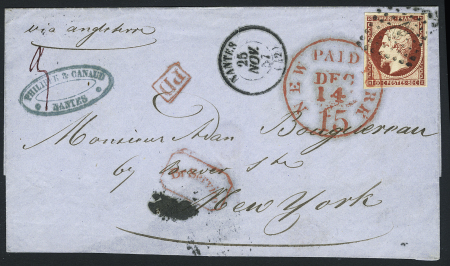 via angleterre
PHILIPPE & CANAUD
NANTES
PD
NANTES
25
NOV.
57
(42)
NEW YORK
PAID
DEC
14
15
80 C POSTES 80 C
Monsieur Adan Bouguereau
69 Beaver Str
New York